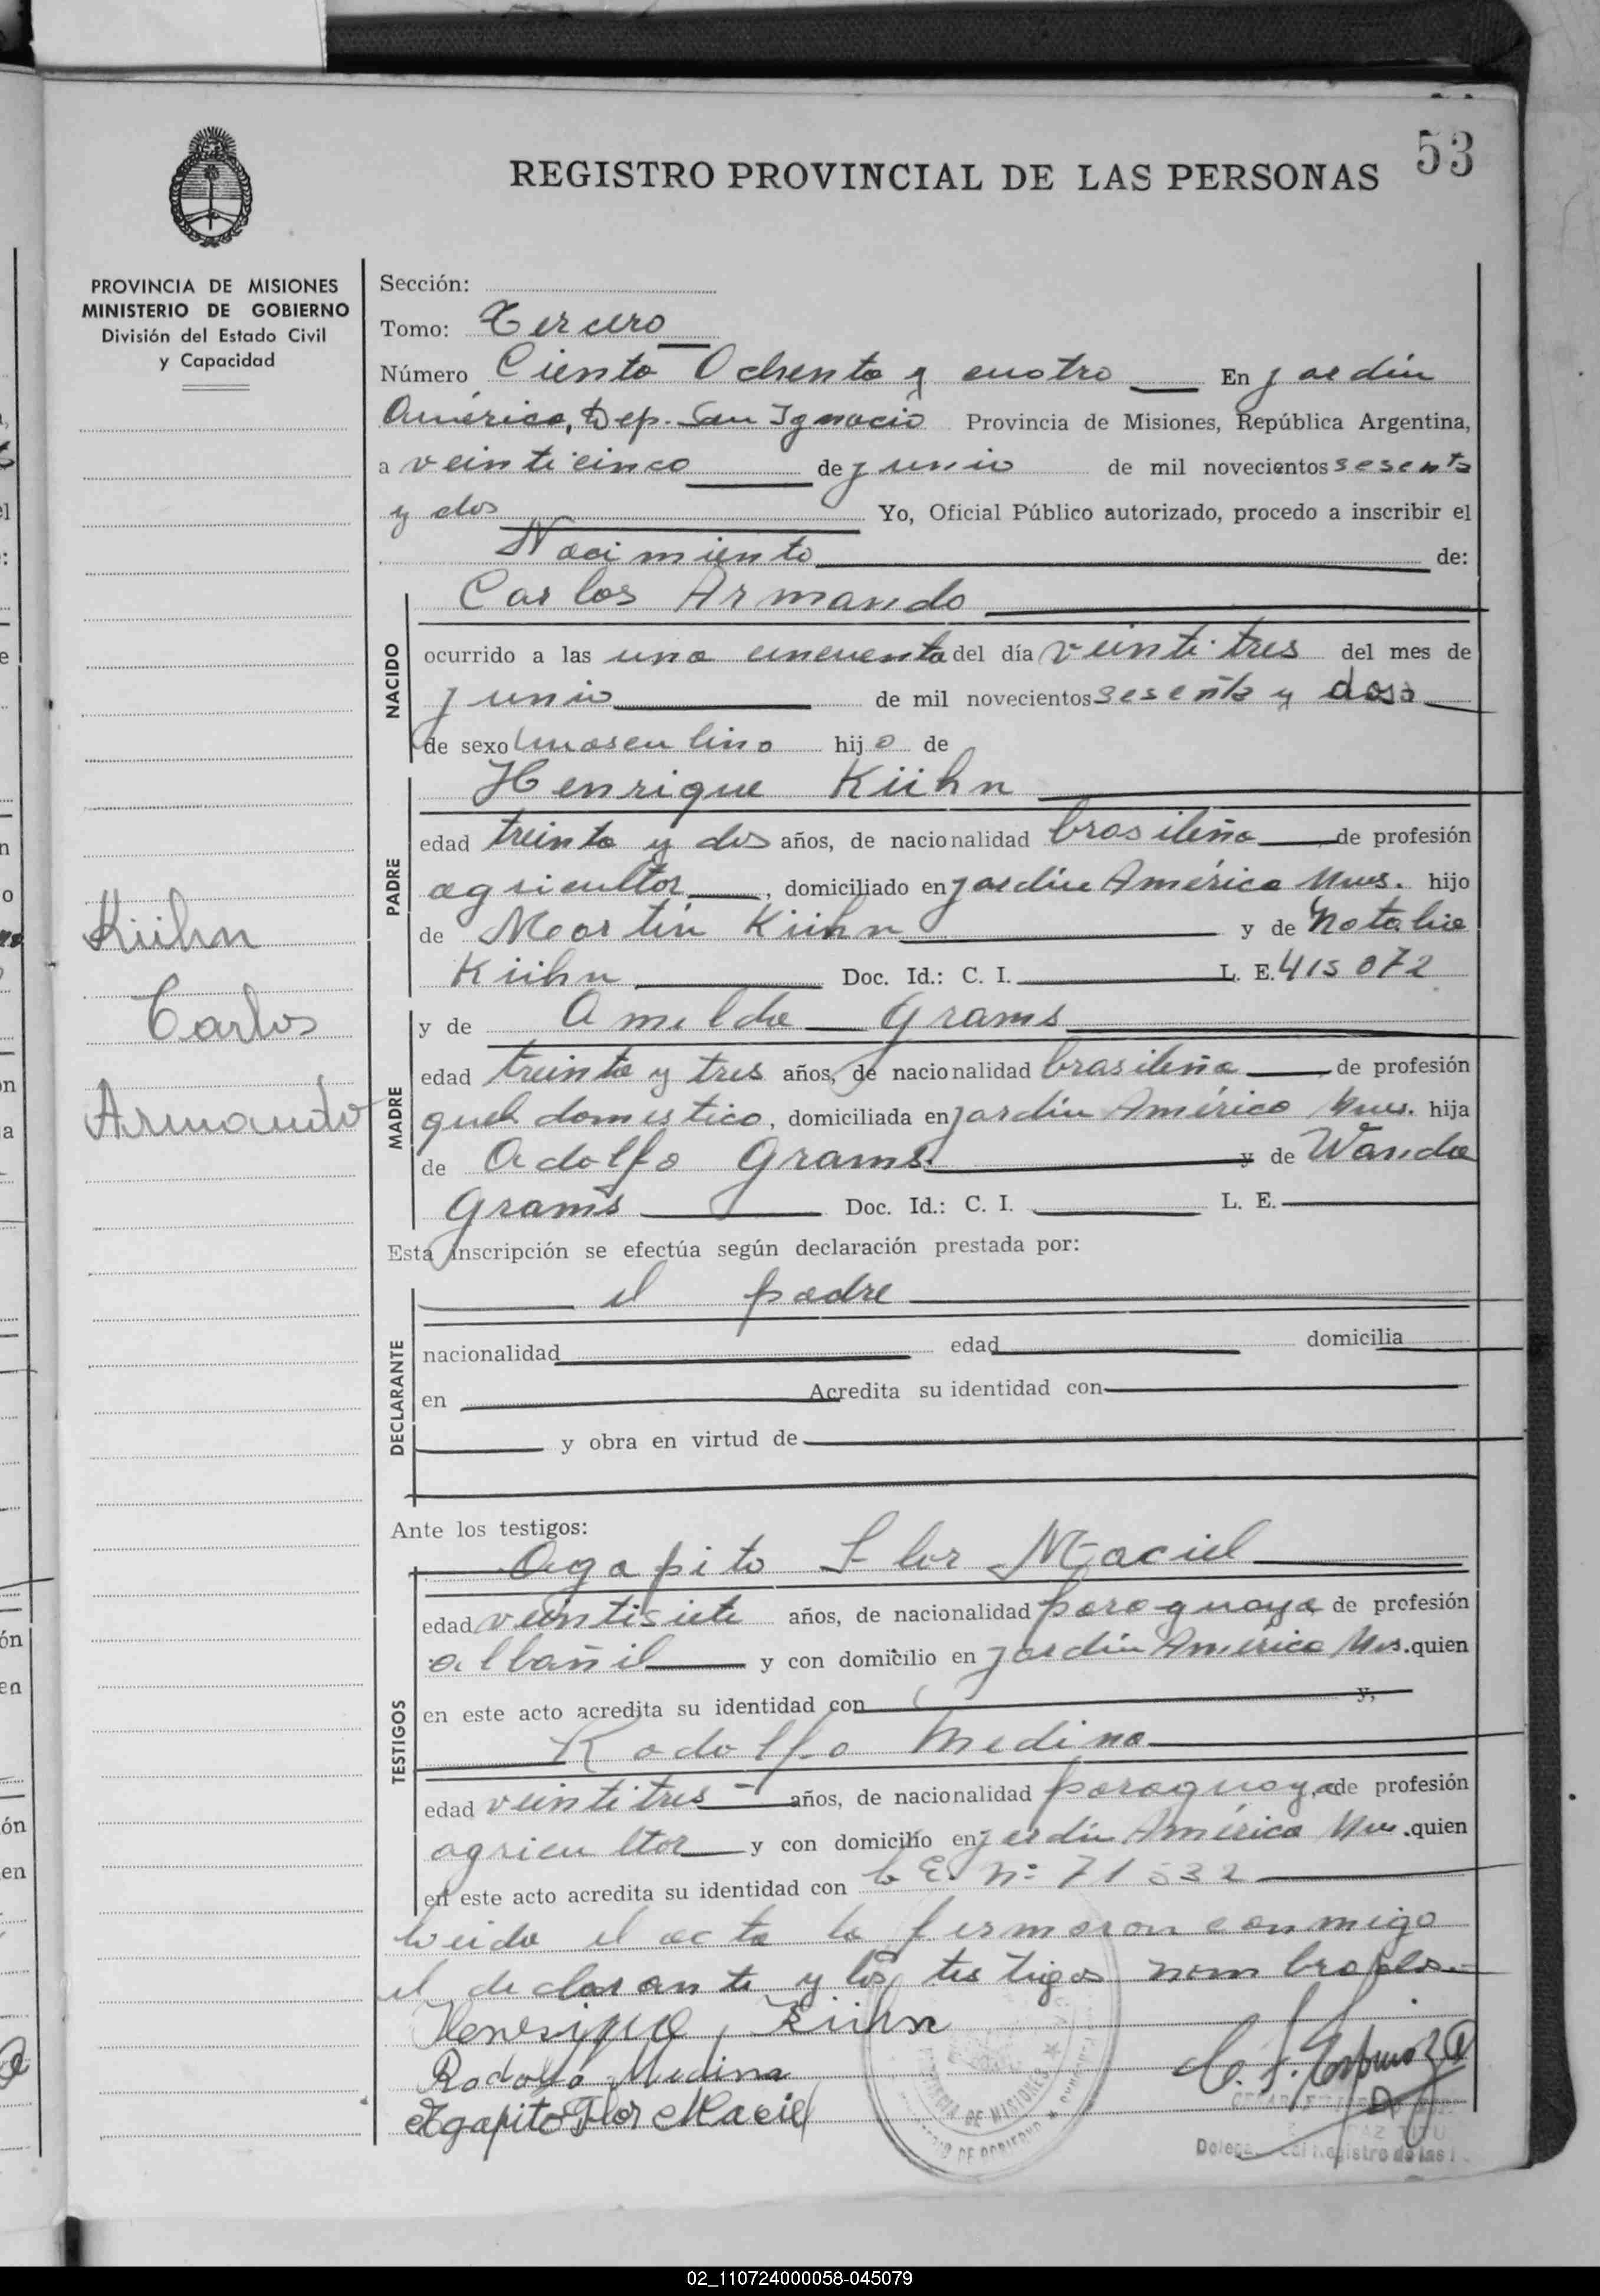 53
REGISTRO PROVINCIAL DE LAS PERSONAS
PROVINCIA DE MISIONES
MINISTERIO DE GOBIERNO
División del Estado Civil
y Capacidad
Kühn
Carlos
Armando
Sección:
Tomo: Tercero
Número Ciento Ochenta y cuatro En jardin
América, Dep. San Ignacio Provincia de Misiones, República Argentina,
a veinticinco de junio de mil novecientos sesenta
y dos Yo, Oficial Público autorizado, procedo a inscribir el
Nacimiento de:
NACIDO
Carlos Armando
ocurrido a las una cincuenta del día veintitres del mes de
junio de mil novecientos sesenta y dos
de sexo masculino hijo de
PADRE
Henrique Kühn
edad treinta y dos años, de nacionalidad brasileña de profesión
agricultor, domiciliado en jardin América Mnes. hijo
de Martín Kühn y de Natalia
Kühn Doc. Id.: C. I. L. E. 415072
MADRE
y de Amilda Grams
edad treinta y tres años, de nacionalidad brasileña de profesión
queh domestico, domiciliada en jardin América Mnes. hija
de Adolfo Grams y de Wanda
Grams Doc. Id.: C. I. L. E.
Esta inscripción se efectúa según declaración prestada por:
DECLARANTE
el padre
nacionalidad edad domicilia
en Acredita su identidad con
y obra en virtud de
Ante los testigos:
TESTIGOS
Agapito Flor Maciel
edad veintisiete años, de nacionalidad paraguaya de profesión
albañil y con domicilio en jardin América Mns. quien
en este acto acredita su identidad con y,
Rodolfo Medina
edad veintitres años, de nacionalidad paraguaya de profesión
agricultor y con domicilio en jardin América Mns. quien
en este acto acredita su identidad con L E. Nº 71532
Leida el acta la firmaron conmigo
el declarante y los testigos nombrados.
Henrique Kühn
Rodolfo Medina
Agapito Flor Maciel
DE MISIONES
DE GOBIERNO
Registro de las
02_110724000058-045079